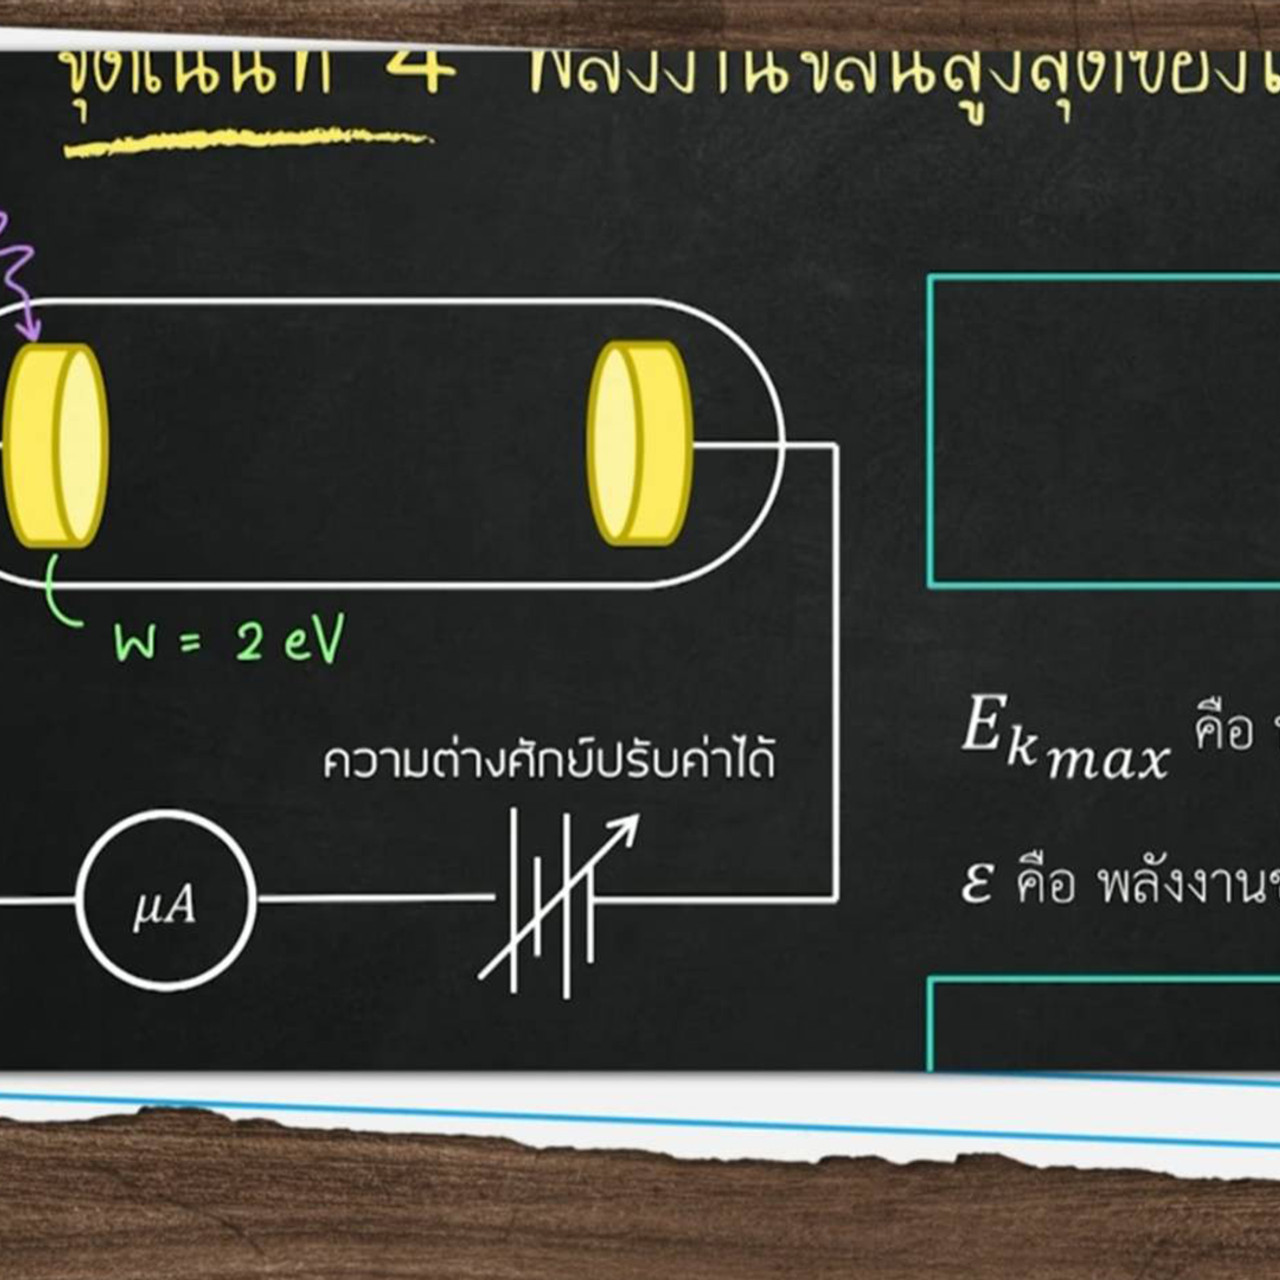 จุดเน้นที่ 4 พลังงานจลน์สูงสุดของ
W = 2 eV
ความต่างศักย์ปรับค่าได้
μA
Ek max คือ
ε คือ พลังงาน